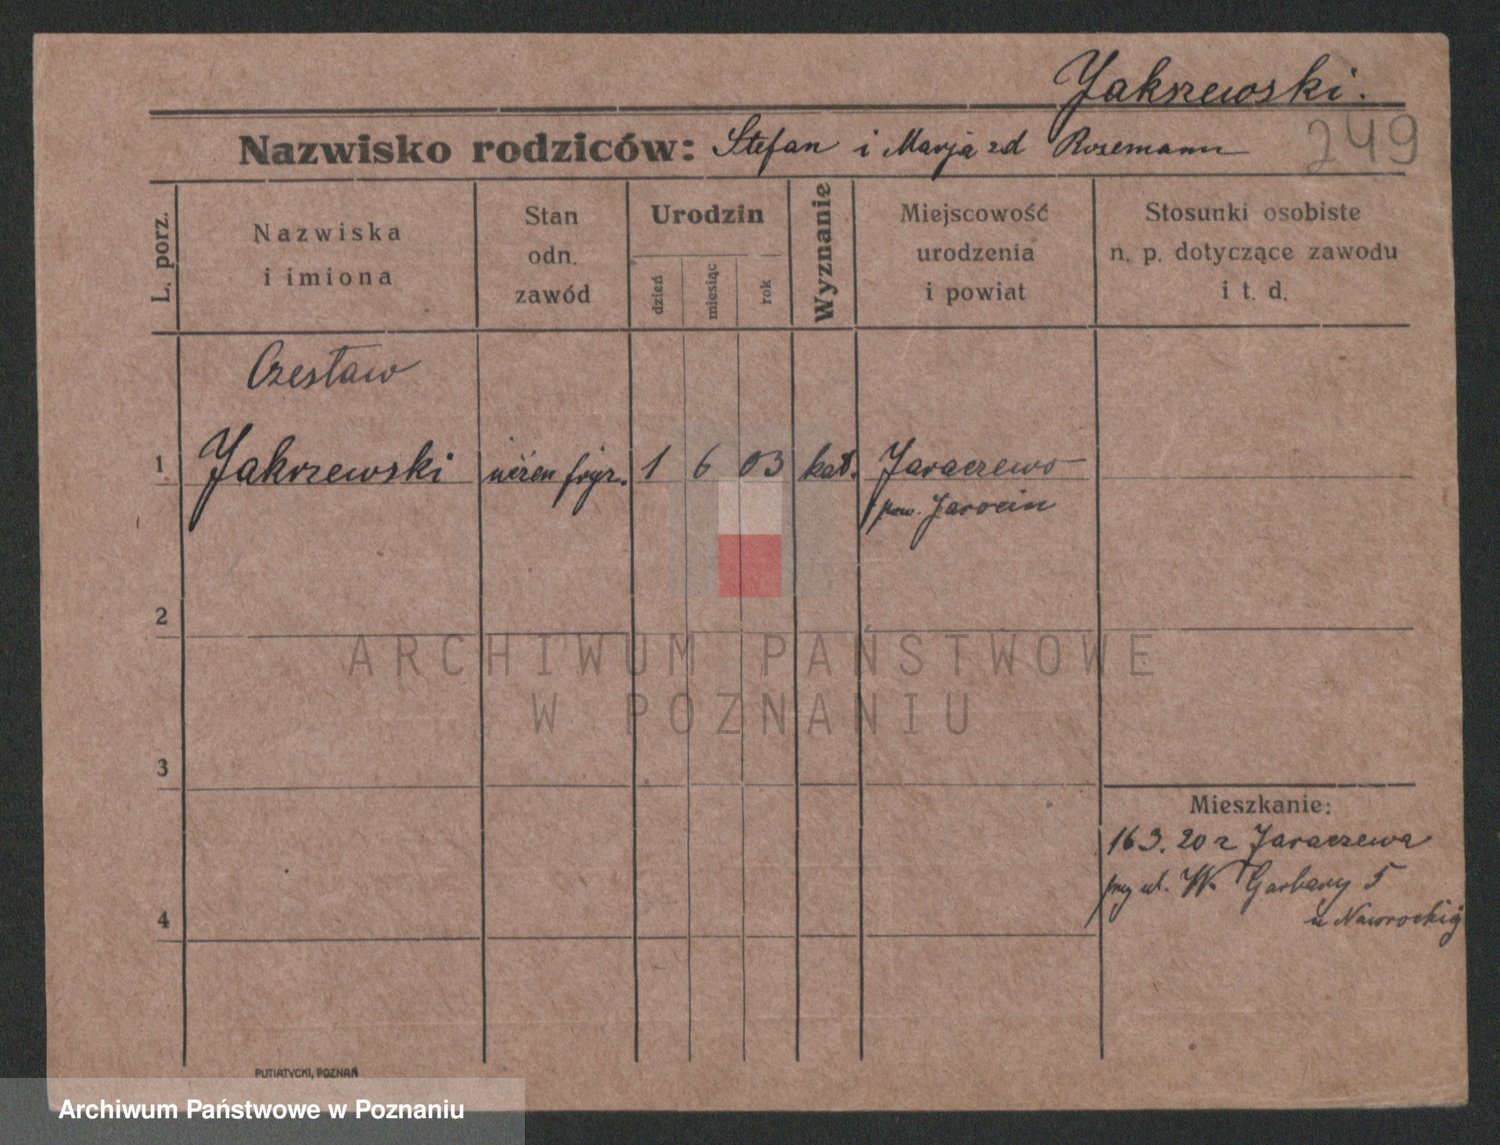 Jakrzewski.
249
Nazwisko rodziców: Stefan i Marja zd Rozemann
L. porz.
Nazwiska
i imiona
Stan
odn.
zawód
Urodzin
dzień
miesiąc
rok
Wyznanie
Miejscowość
urodzenia
i powiat
Stosunki osobiste
n. p. dotyczące zawodu
i t. d.
Czesław
1 Jakrzewski uczeń fryz. 1 6 03 kat. Jaraczewo
pow. Jarocin
2
ARCHIWUM PAŃSTWOWE
W POZNANIU
3
Mieszkanie:
16 3. 20 z Jaraczewa
przy ul. W. Garbary 5
u Nawrockiej
4
PUTIATYCKI, POZNAŃ
Archiwum Państwowe w Poznaniu